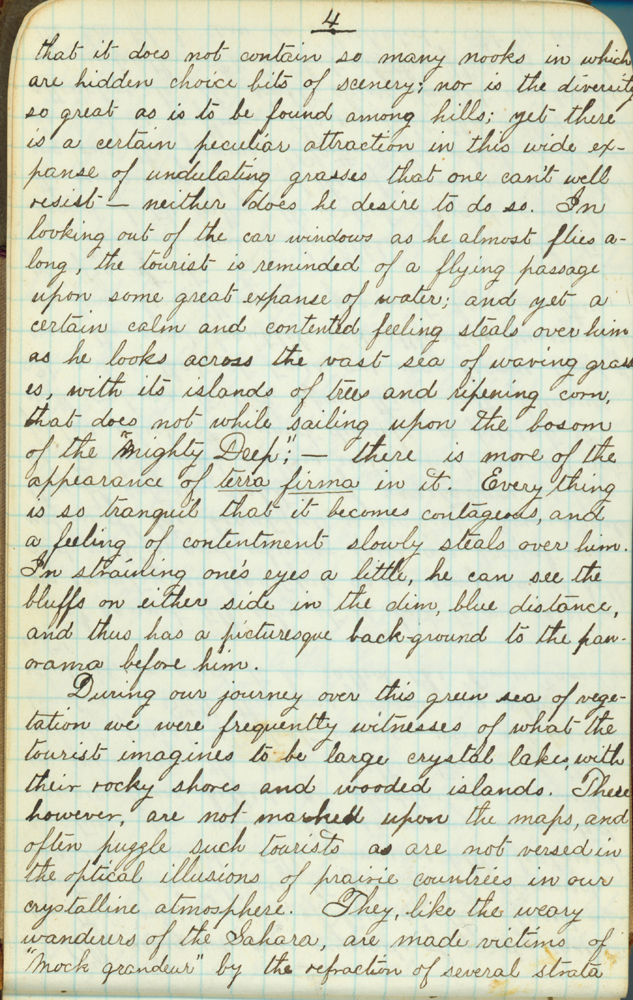 4
that it does not contain so many nooks in which
are hidden choice bits of scenery; nor is the diversity
so great as is to be found among hills; yet there
is a certain peculiar attraction in this wide ex-
panse of undulating grasses that one can't well
resist — neither does he desire to do so. In
looking out of the car windows as he almost flies a-
long, the tourist is reminded of a flying passage
upon some great expanse of water; and yet a
certain calm and contented feeling steals over him
as he looks across the vast sea of waving grass
es, with its islands of trees and ripening corn,
that does not while sailing upon the bosom
of the "Mighty Deep"; — there is more of the
appearance of terra firma in it. Every thing
is so tranquil that it becomes contageous, and
a feeling of contentment slowly steals over him.
In straining one's eyes a little, he can see the
bluffs on either side in the dim, blue distance,
and thus has a picturesque back-ground to the pan-
orama before him.
During our journey over this green sea of vege-
tation we were frequently witnesses of what the
tourist imagines to be large crystal lakes, with
their rocky shores and wooded islands. These
however, are not marked upon the maps, and
often puzzle such tourists as are not versed in
the optical illusions of prairie countries in our
crystalline atmosphere. They, like the weary
wanderers of the Sahara, are made victims of
"Mock grandeur" by the refraction of several strata